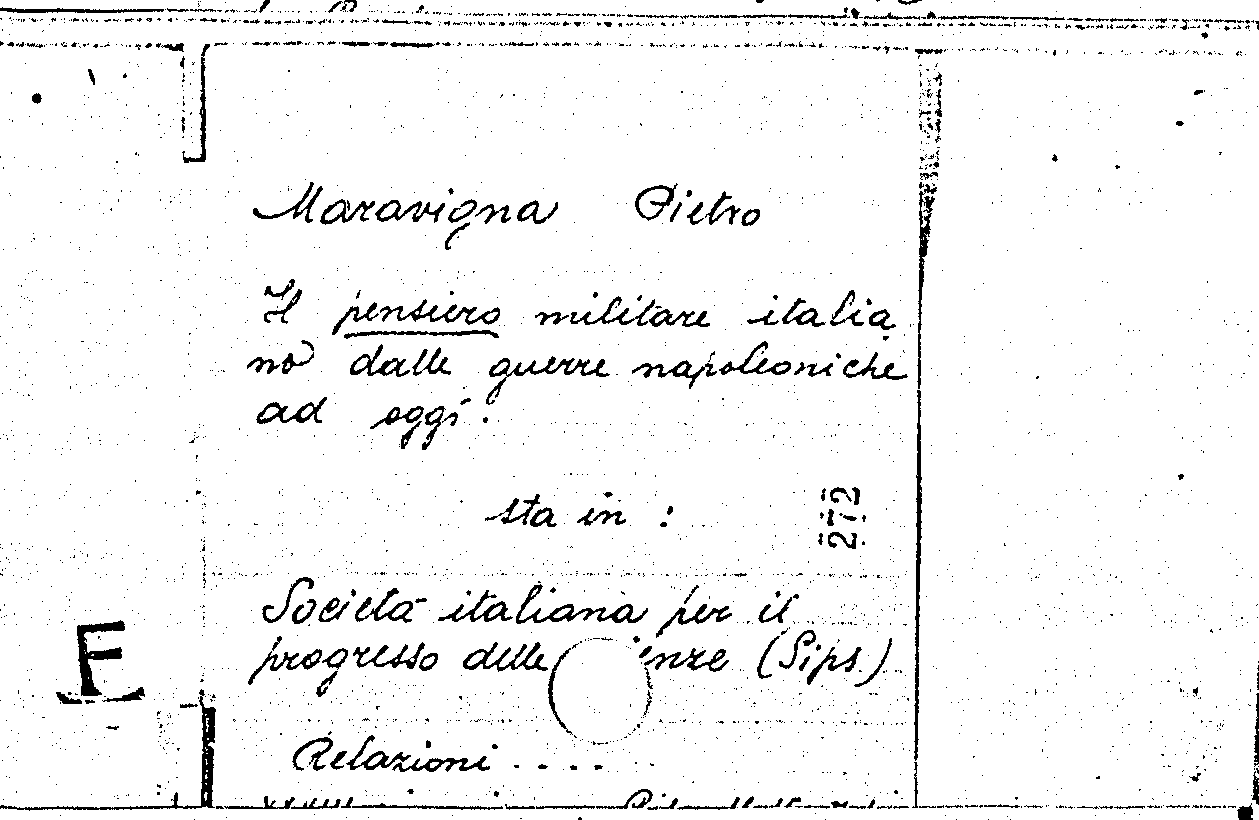 Maravigna Pietro
Il pensiero militare italia
no dalle guerre napoleoniche
ad oggi.
sta in :
272
Società italiana per il
progresso delle (Sips)
E
Relazioni ....